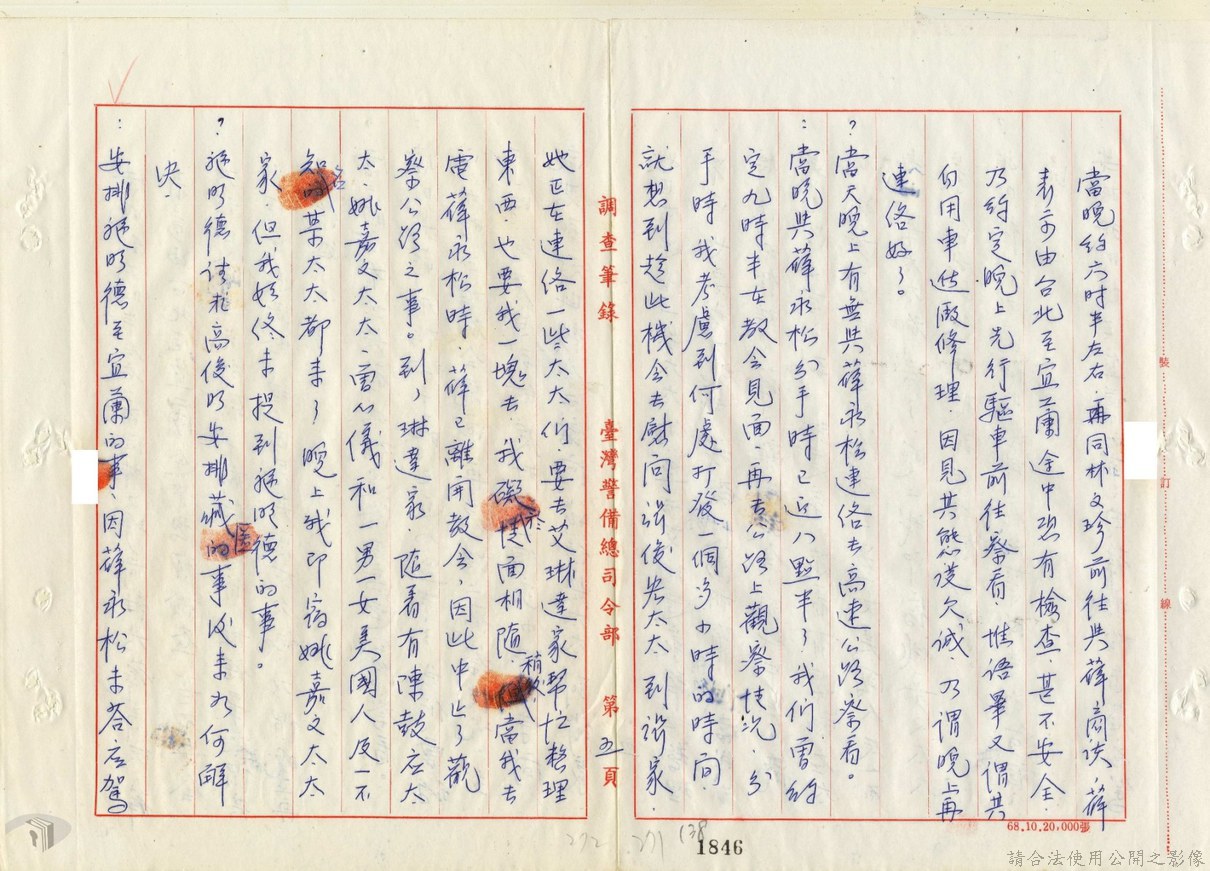 當晚約六時半左右，再同林文珍前往與薛商談，薛
表示由台北至宜蘭途中恐有檢查，甚不安全，
乃約定晚上先行驅車前往察看，惟語畢又謂其
自用車送廠修理，因見其態度欠誠，乃謂晚上再
連絡好了。
？當天晚上有無與薛永松連絡去高速公路察看。
：當晚與薛永松分手時已近八點半了，我們曾約
定九時半在教會見面，再去公路上觀察情況，分
手時我考慮到何處打發一個多小時的時間，
就想到趁此機會去慰問張俊宏太太，到張家，
調查筆錄 臺灣警備總司令部 第五頁
她正在連絡一些太太們，要去艾琳達家幫忙整理
東西，也要我一塊去，我礙於情面相隨，稍後當我去
電薛永松時，薛已離開教會，因此中止了觀
察公路之事。到了琳達家，隨著有陳鼓應太
太、姚嘉文太太、曾心儀和一男一女美國人及一不
知名某太太都來了，晚上我即宿姚嘉文太太
家，但我始終未提到施明德的事。
？施明德請托高俊明安排藏匿的事後來如何解
決。
：安排施明德至宜蘭的事，因薛永松未答应駕
裝 訂 線
68.10.20,000張
138
272 271
1846
請合法使用公開之影像